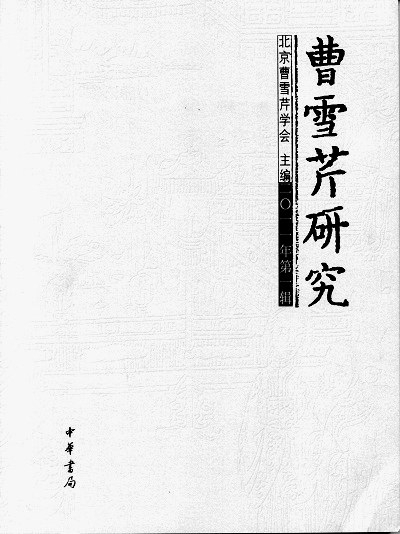 曹雪芹研究
北京曹雪芹学会 主编
二〇一一年第一辑
中華書局